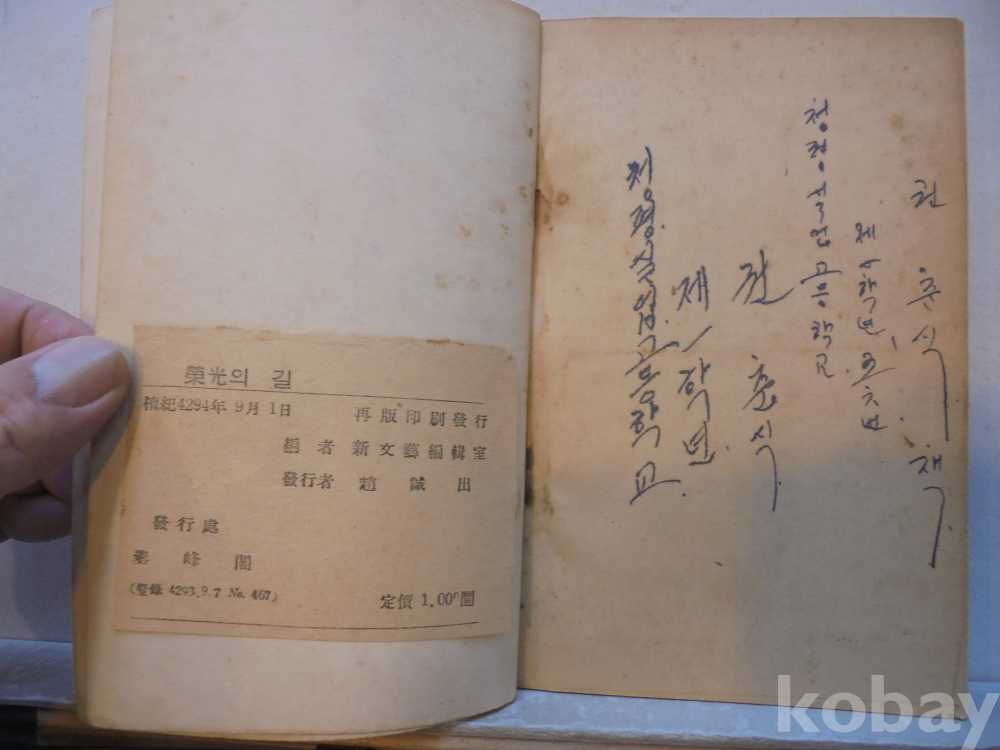 榮光의 길
檀紀4294年 9月 1日 再版印刷發行
編者 新文藝編輯室
發行者 趙誠出
發行處
峰閣
(登錄 4293.9.7 No. 467)
定價 1,00 圜
권 춘 식 책
청평설업고등학교
권 춘식
제1학년
청평실업고등학교
kobay